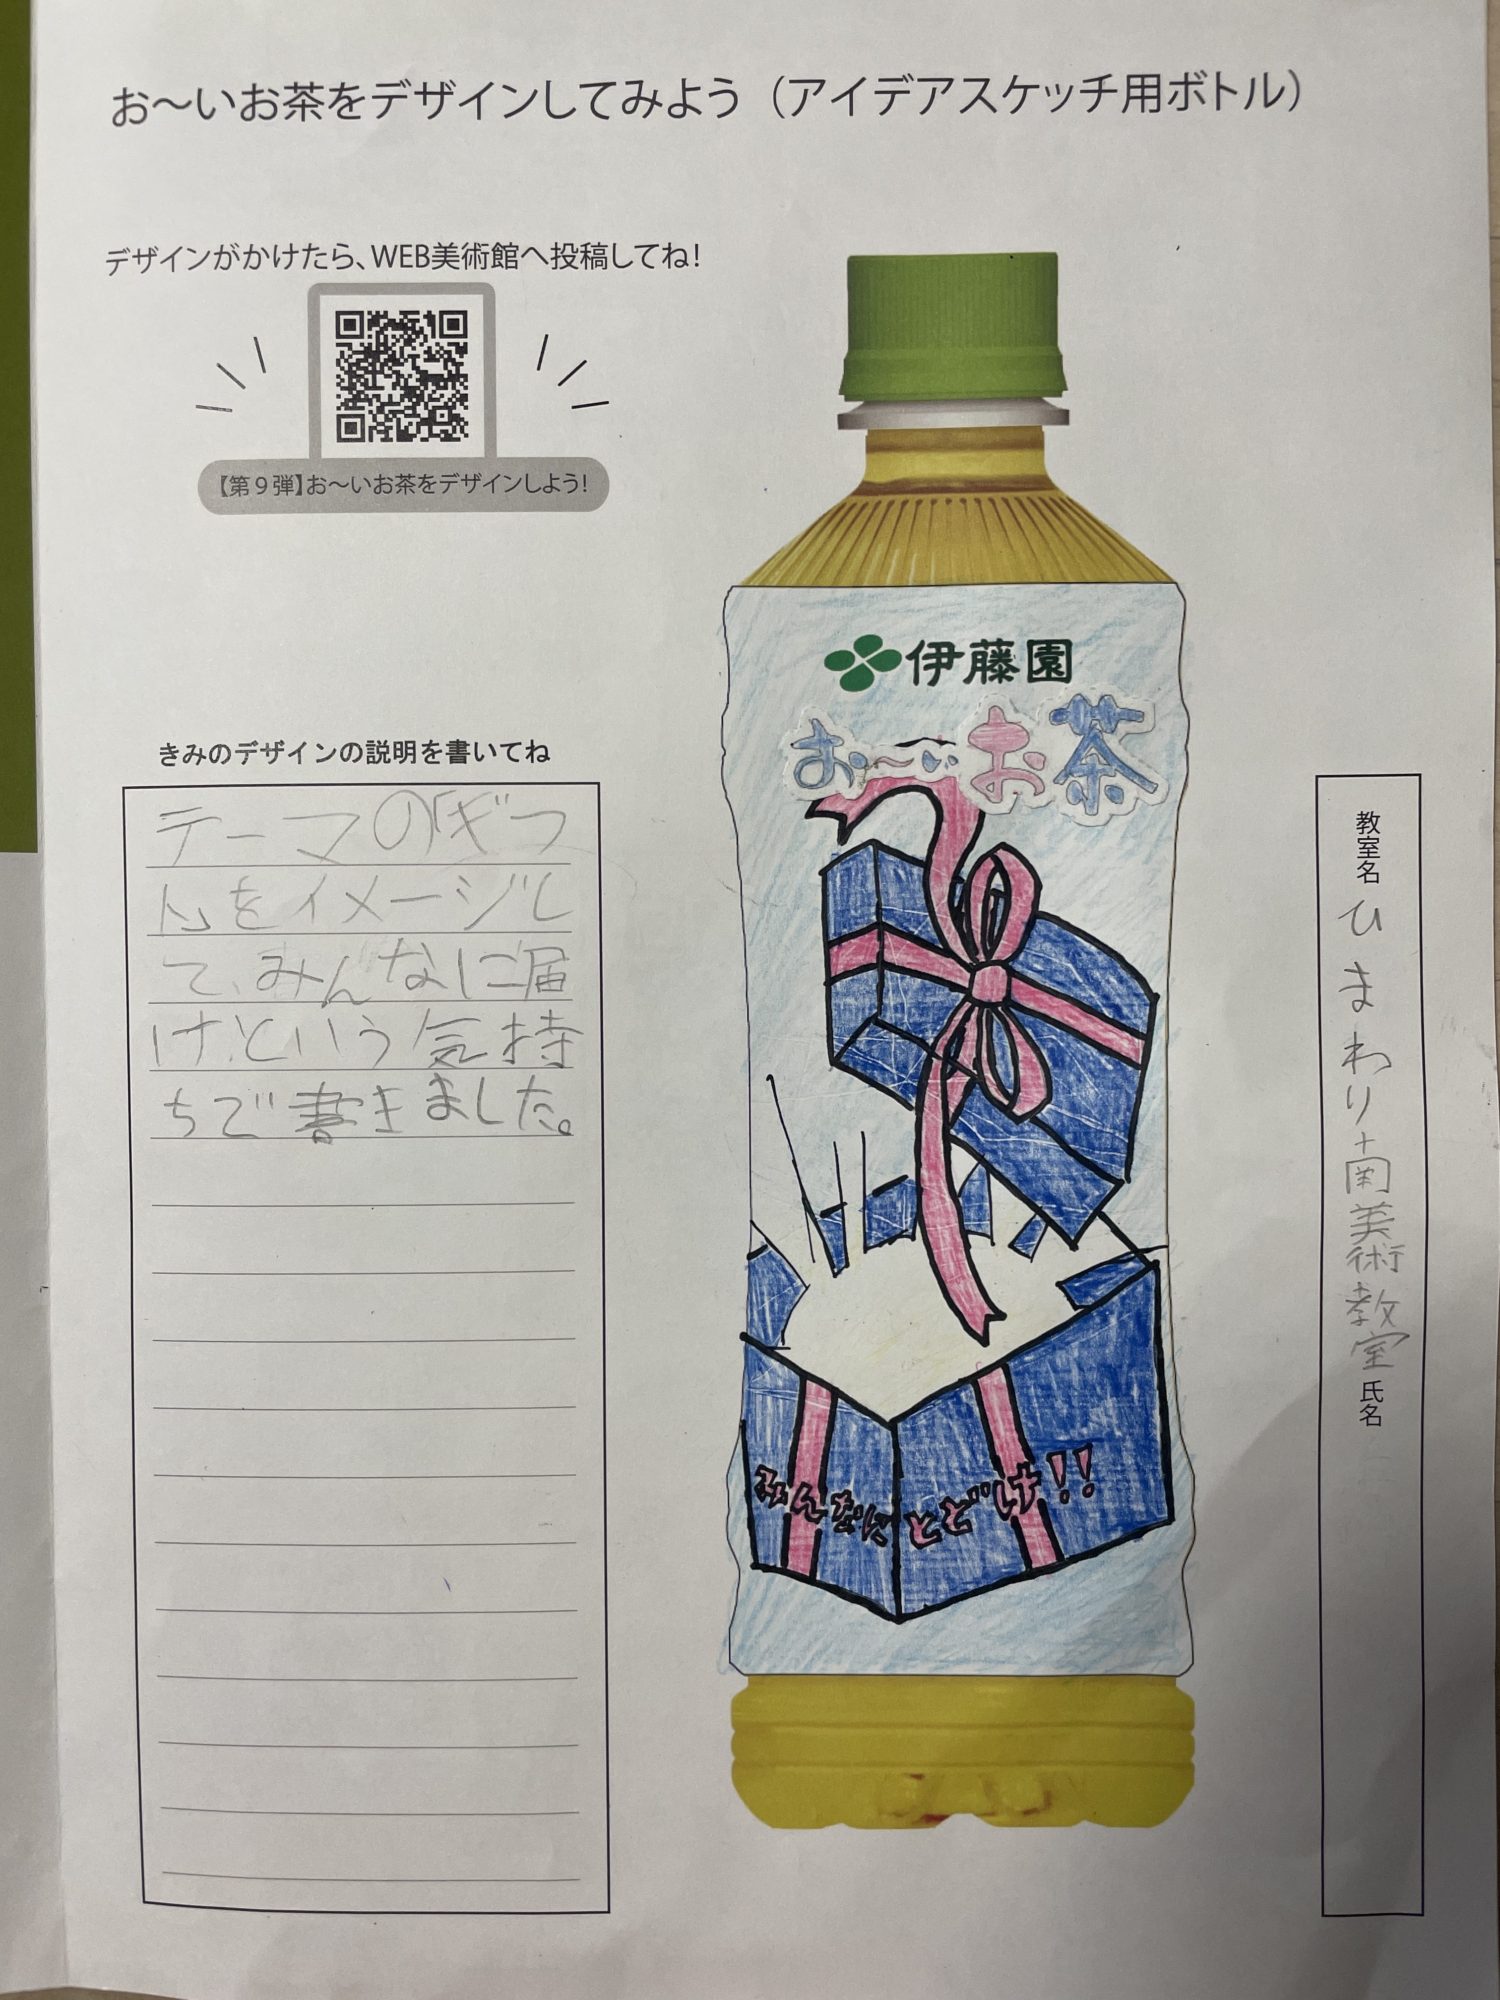 お～いお茶をデザインしてみよう（アイデアスケッチ用ボトル）
デザインがかけたら、WEB美術館へ投稿してね！
【第９弾】お～いお茶をデザインしよう！
伊藤園
お～いお茶
きみのデザインの説明を書いてね
テーマの「ギフ
ト」をイメージし
て、みんなに届
け、という気持
ちで書きました。
みんなにとどけ!!
教室名 ひまわり南美術教室 氏名